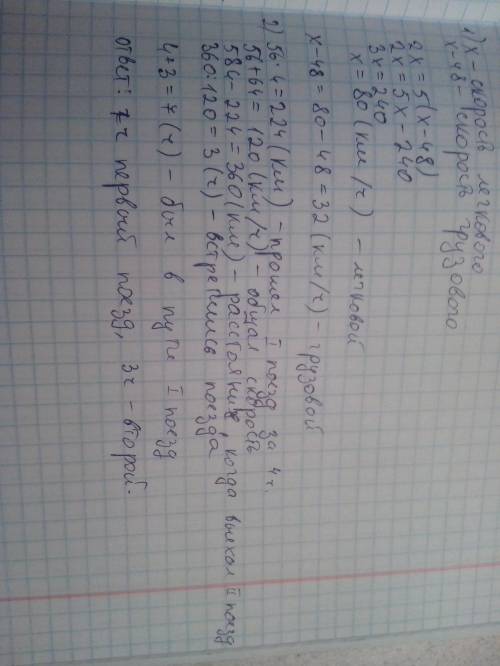 1) x - скорость легкового
x-48 - скорость грузового
2x = 5(x-48)
2x = 5x - 240
3x = 240
x = 80 (км/ч) - легковой
x-48 = 80-48 = 32 (км/ч) - грузовой
2) 56·4 = 224 (км) - прошел I поезд за 4ч.
56+64 = 120 (км/ч) - общая скорость
584-224 = 360 (км) - расстояние, когда выехал II поезд
360:120 = 3 (ч) - встретились поезда
4+3 = 7 (ч) - был в пути I поезд
ответ: 7ч первый поезд, 3ч - второй.